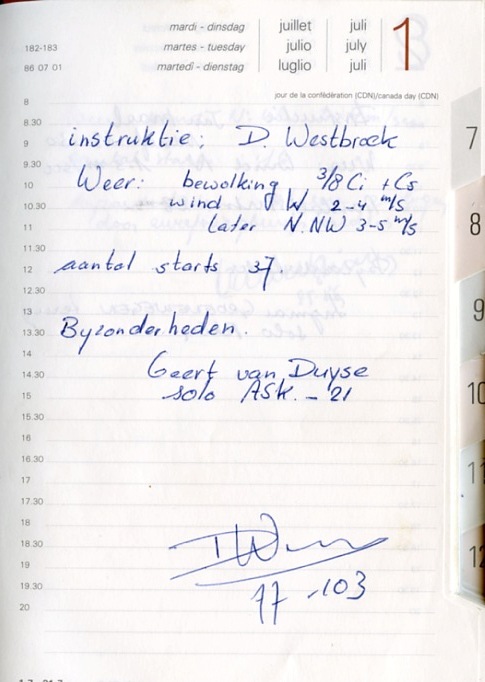 mardi - dinsdag juillet juli 1
182-183 martes - tuesday julio july
86 07 01 martedì - dienstag luglio juli
jour de la confédération (CDN)/canada day (CDN)
8
8.30
instruktie; D. Westbroek
9
9.30
Weer: bewolking 3/8 Ci + Cs
10
wind W 2-4 m/s
10.30
later N.NW 3-5 m/s
11
11.30
aantal starts 37.
12
12.30
13
Byzonderheden.
13.30
14
Geert van Duyse
14.30
solo ASK. - 21
15
15.30
16
16.30
17
17.30
18
18.30
19
19.30
17 -103
20
7
8
9
10
11
12